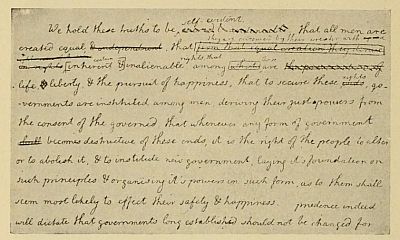 self-evident,
We hold these truths to be that all men are
they are endowed by their creator with
created equal & independent, that from that equal creation they derive
rights that
rights inherent & inalienable among which are
rights
life, & liberty, & the pursuit of happiness, that to secure these ends, go-
-vernments are instituted among men, deriving their just powers from
the consent of the governed, that whenever any form of government
shall becomes destructive of these ends, it is the right of the people to alter
or to abolish it, & to institute new government, laying it's foundation on
such principles & organising it's powers in such form, as to them shall
seem most likely to effect their safety & happiness. prudence indeed
will dictate that governments long established should not be changed for